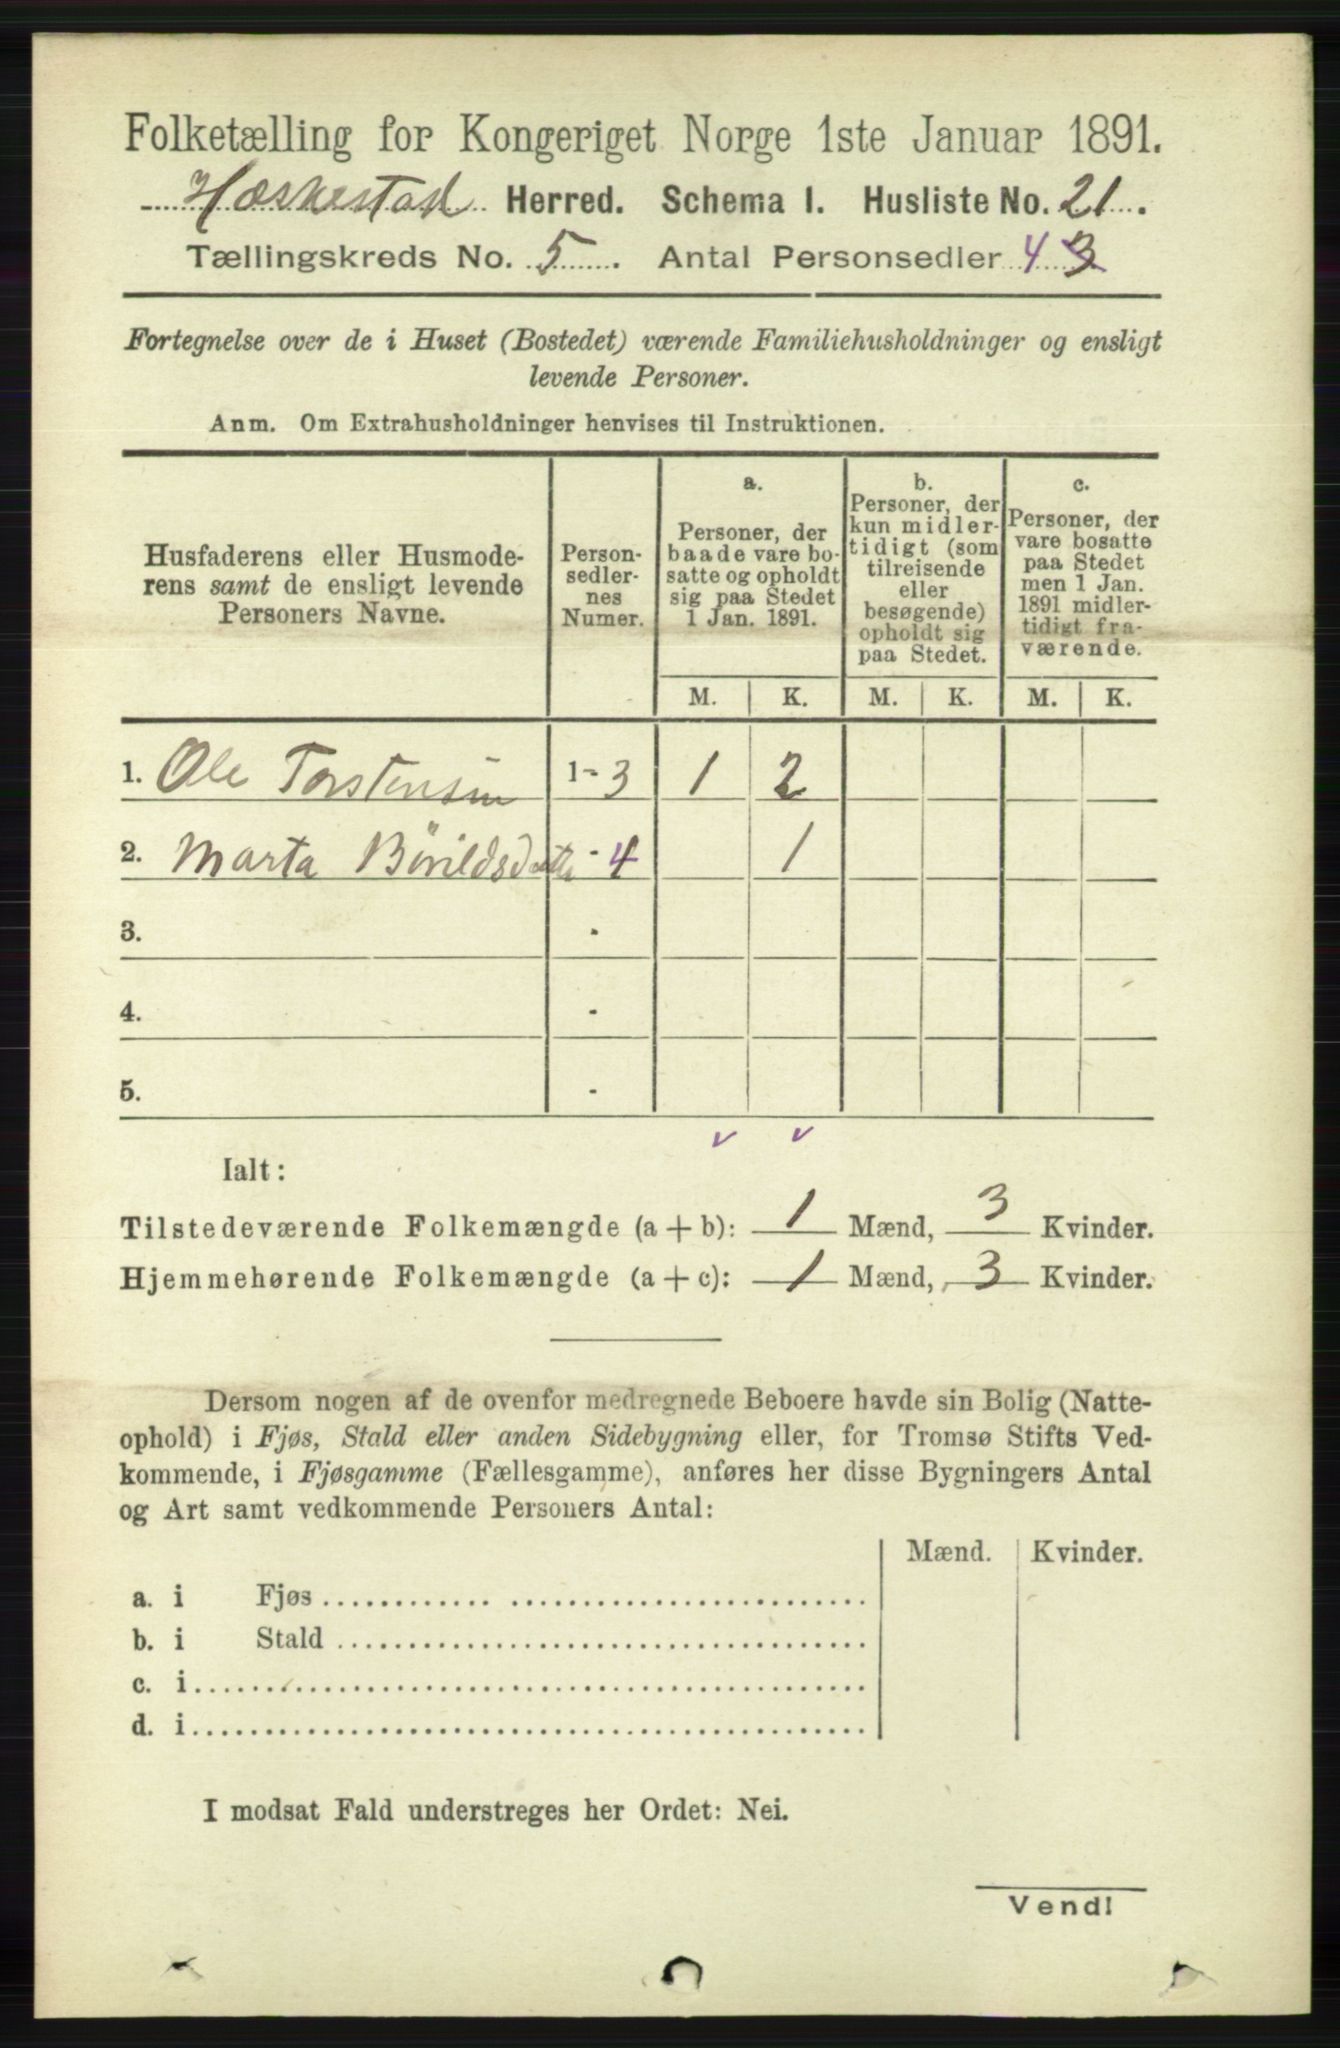 Folketælling for Kongeriget Norge 1ste Januar 1891.
Heskestad Herred. Schema I. Husliste No. 21.
Tællingskreds No. 5. Antal Personsedler 4 3
Fortegnelse over de i Huset (Bostedet) værende Familiehusholdninger og ensligt
levende Personer.
Anm. Om Extrahusholdninger henvises til Instruktionen.
Husfaderens eller Husmode-
rens samt de ensligt levende
Personers Navne.
Person-
sedler-
nes
Numer.
a.
Personer, der
baade vare bo-
satte og opholdt
sig paa Stedet
1 Jan. 1891.
b.
Personer, der
kun midler-
tidigt (som
tilreisende
eller
besøgende)
opholdt sig
paa Stedet.
c.
Personer, der
vare bosatte
paa Stedet
men 1 Jan.
1891 midler-
tidigt fra-
værende.
M. K. M. K. M. K.
1. Ole Torstensen 1-3 1 2
2. Marta - 4 1
3. -
4. -
5. -
v v
Ialt:
Tilstedeværende Folkemængde (a + b): 1 Mænd, 3 Kvinder.
Hjemmehørende Folkemængde (a + c): 1 Mænd, 3 Kvinder.
Dersom nogen af de ovenfor medregnede Beboere havde sin Bolig (Natte-
ophold) i Fjøs, Stald eller anden Sidebygning eller, for Tromsø Stifts Ved-
kommende, i Fjøsgamme (Fællesgamme), anføres her disse Bygningers Antal
og Art samt vedkommende Personers Antal:
Mænd. Kvinder.
a. i Fjøs
b. i Stald
c. i
d. i
I modsat Fald understreges her Ordet: Nei.
Vend!